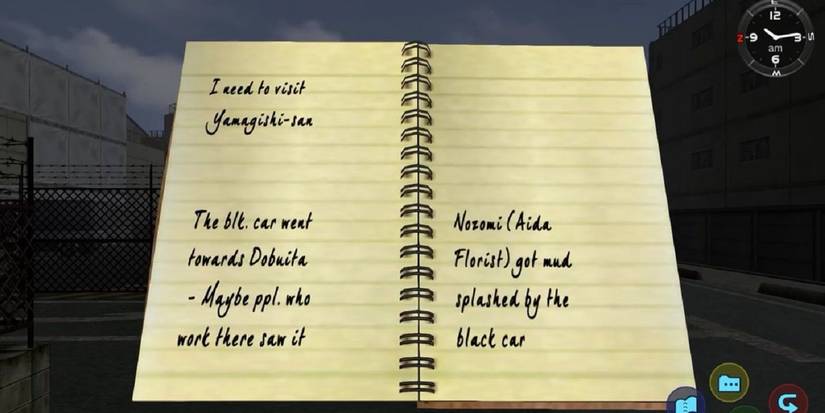 I need to visit
Yamagishi-san
The blk. car went
towards Dobuita
- Maybe ppl. who
work there saw it
Nozomi (Aida
Florist) got mud
splashed by the
black car
12
9
3
am
6
Z
S
W